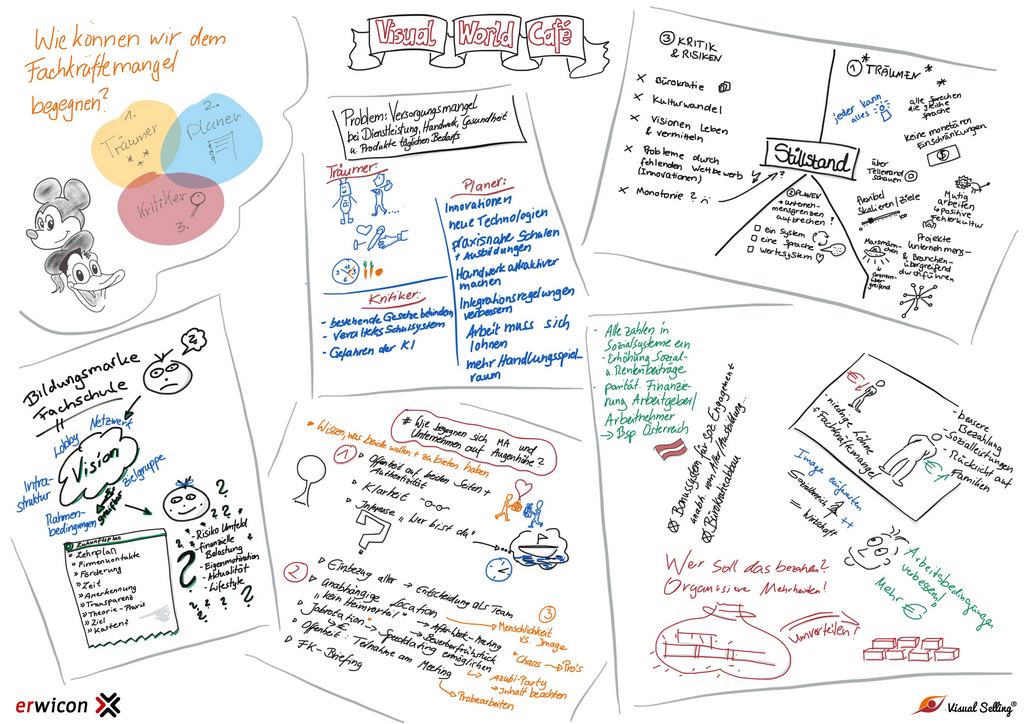 Visual World Café
Wie können wir dem
Fachkräftemangel
begegnen?
1.
Träumer
2.
Planer
Kritiker
3.
Problem: Versorgungsmangel
bei Dienstleistung, Handwerk, Gesundheit
u. Produkte täglichen Bedarfs
Träumer:
Kritiker:
- bestehende Gesetze behindern
- Veraltetes Schulsystem
- Gefahren der KI
Planer:
Innovationen
neue Technologien
praxisnahe Schulen
+ Ausbildungen
Handwerk attraktiver
machen
Integrationsregelungen
verbessern
Arbeit muss sich
lohnen
mehr Handlungsspiel-
raum
③ KRITIK
& RISIKEN
x Bürokratie
x Kulturwandel
x Visionen Leben
& vermitteln
x Probleme durch
fehlenden Wettbewerb
(Innovationen)
x Monotonie?
Stillstand
① TRÄUMEN
jeder kann
alles
alle sprechen
die gleiche
Sprache
keine monetären
Einschränkungen
$
über
Tellerrand
schauen
flexibel
Skalieren/Ziele
Mutig
arbeiten
+ positive
Fehlerkultur
Projekte
Unternehmens-
& Branchen-
übergreifend
durchführen
② PLANEN
→ unterneh-
mensgrenzen
aufbrechen!
□ ein System
□ eine Sprache
□ Wertesystem
Bildungsmarke
Fachschule
?
Netzwerk
Lobby
Vision
Zielgruppe
Infra-
struktur
Rahmen-
bedingungen
Zukunftsplan
» Lehrplan
» Firmenkontakte
» Förderung
» Zeit
» Anerkennung
» Transparenz
» Theorie-Praxis
» Ziel
» Kosten?
- Risiko Umfeld
- finanzielle
Belastung
- Eigenmotivation
- Aktualität
- Lifestyle
# Wie begegnen sich MA und
Unternehmen auf Augenhöhe?
Wissen, was beide wollen + zu bieten haben
①
Offenheit auf beiden Seiten +
Authentizität
Klarheit
Interesse „Wer bist du“
?
②
Einbezug aller → Entscheidung als Team
unabhängige Location
„kein Heimvorteil“
→ AfterWork-Meeting
→ Bewerberfrühstück
Jobrotation → Speeddating ermöglichen
Offenheit: Teilnahme am Meeting
FK-Briefing
→ Probearbeiten
③
→ Menschlichkeit
vs. Image
"Chaos → Pro's
Azubi-Party
→ Inhalt beachten
- Alle zahlen in
Sozialsysteme ein
- Erhöhung Sozial-
u. Rentenbeiträge
- parität. Finanzie-
rung Arbeitgeber/
Arbeitnehmer
→ Bsp Österreich
Bürokratieabbau
€
- niedrige Löhne
+ Fachkräftemangel
€
- bessere
Bezahlung
- Sozialleistungen
- Rücksicht auf
Familien
Image
aufwerten
++
= Wirtschaft
Arbeitsbedingungen
verbessern!
Mehr €
Wer soll das bezahlen?
Organisiere Mehrheiten!
umverteilen!
erwicon
Visual Selling®